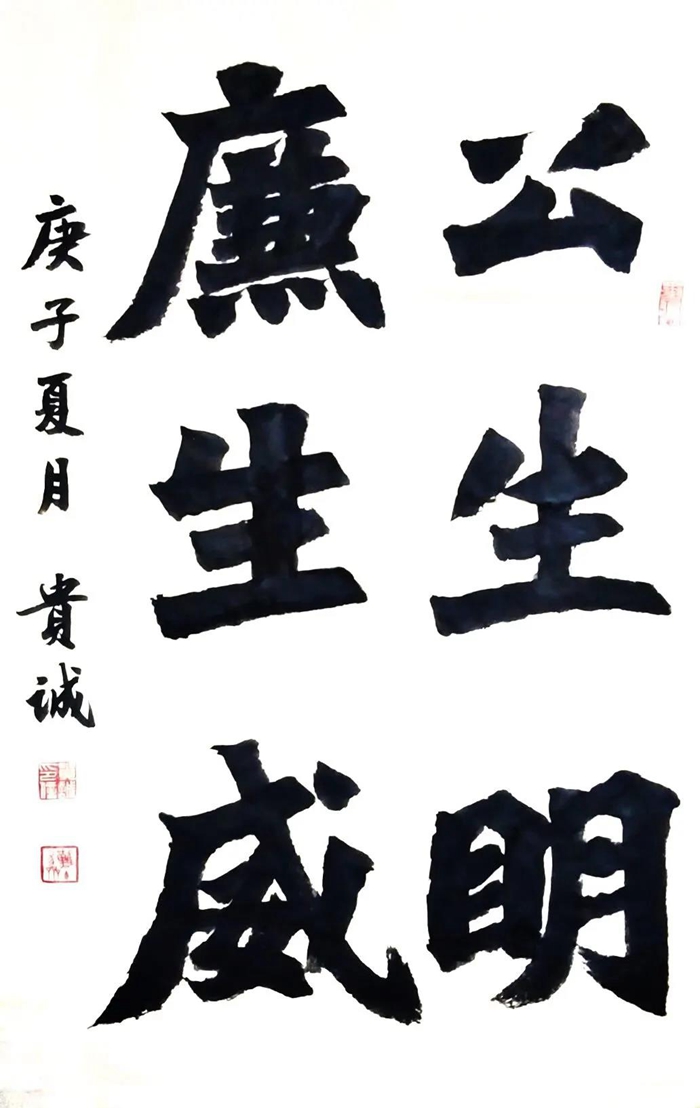 公生明
廉生威
庚子夏月 貴誠